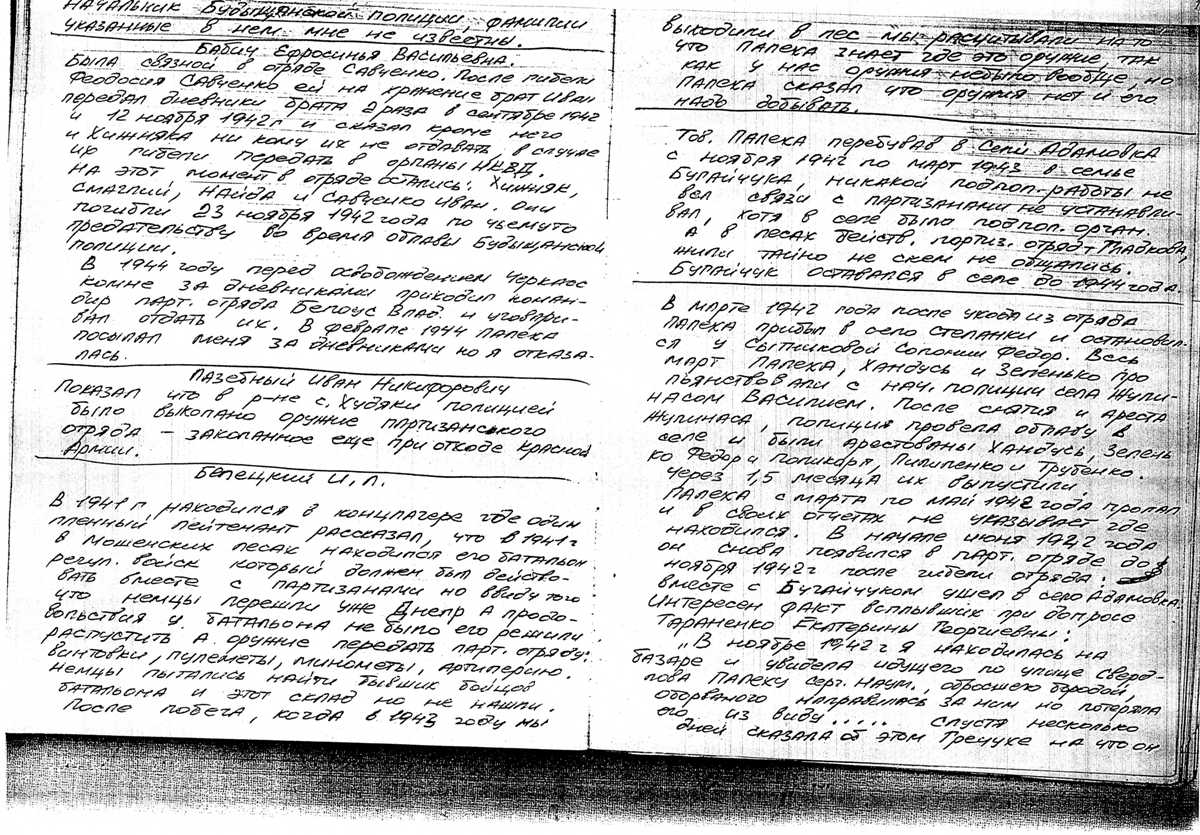 начальник Будыщанской полиции, фамилии
указанные в нем мне не известны.
Бабич Ефросинья Васильевна.
Была связной в отряде Савченко. После гибели
Феодосия Савченко ей на хранение брат Иван
передал дневники брата 2 раза в сентябре 1942
и 12 ноября 1942 г и сказал кроме него
и Хижняка ни кому их не отдавать, в случае
их гибели передать в органы НКВД.
На этот момент в отряде остались: Хижняк,
Смаглий, Найда и Савченко Иван. Они
погибли 23 ноября 1942 года по чьемуто
предательству во время облавы Будыщанской
полиции.
В 1944 году перед освобождением Черкасс
комне за дневниками приходил коман-
дир парт. отряда Белоус Влад. и уговари-
вал отдать их. В феврале 1944 Палеха
посылал меня за дневниками но я отказа-
лась.
Лазебный Иван Никифорович
Показал что в р-не с. Худяки полицией
было выкопано оружие партизанского
отряда – закопанное еще при отходе Красной
Армии.
Белецкий И, Л.
В 1941 г находился в концлагере где один
пленный лейтенант рассказал, что в 1941 г
в Мошенских лесах находился его батальон
регул. войск который должен был действо-
вать вместе с партизанами но ввиду того
что немцы перешли уже Днепр А продо-
вольствия у батальона не было его решили
распустить А оружие передать парт. отряду:
винтовки, пулеметы, минометы, артилерию.
Немцы пытались найти бывших бойцов
батальона и этот склад но не нашли.
После побега, когда в 1943 году мы
выходили в лес мы расчитывали на то
что Палеха знает где это оружие, так
как у нас оружия небыло вообще, но
Палеха сказал что оружия нет и его
надо добывать.
Тов. Палеха перебував в Селі Адамовка
с ноября 1942 по март 1943 в семье
Бугайчука, никакой подпол. работы не
вел связи с партизанами не устанавли-
вал, хотя в селе было подпол. орган.
А в лесах действ. портиз. отряд Гладкова,
жили тайно не скем не общались.
Бугайчук оставался в селе до 1944 года.
В марте 1942 года после ухода из отряда
Палеха прибыл в село Степанки и остановил-
ся у Сытниковой Соломии Федор. Весь
март Палеха, Хандусь и Зеленько про
пьянствовали с нач. полиции села Жули-
насом Василием. После снятия и ареста
Жулинаса, полиция провела облаву в
селе и были арестованы Хандусь, Зелень
ко Федор и Поликарп, Пилипенко и Трубенко.
Через 1,5 месяца их выпустили.
Палеха с марта по май 1942 года пропал
и в своих отчетах не указывает где
находился. В начале июня 1942 года
он снова появился в парт. отряде до
ноября 1942 г после гибели отряда.
вместе с Бугайчуком ушел в село Адамовка.
Интересен факт всплывших при допросе
Тараненко Екатерины Георгиевны:
„В ноябре 1942 г я находилась на
базаре и увидела идущего по улице Сверд-
лова Палеху Серг. Наум., обросшего бородой,
оборваного направилась за ним но потеряла
его из виду..... спустя несколько
дней сказала об этом Гречухе на что он